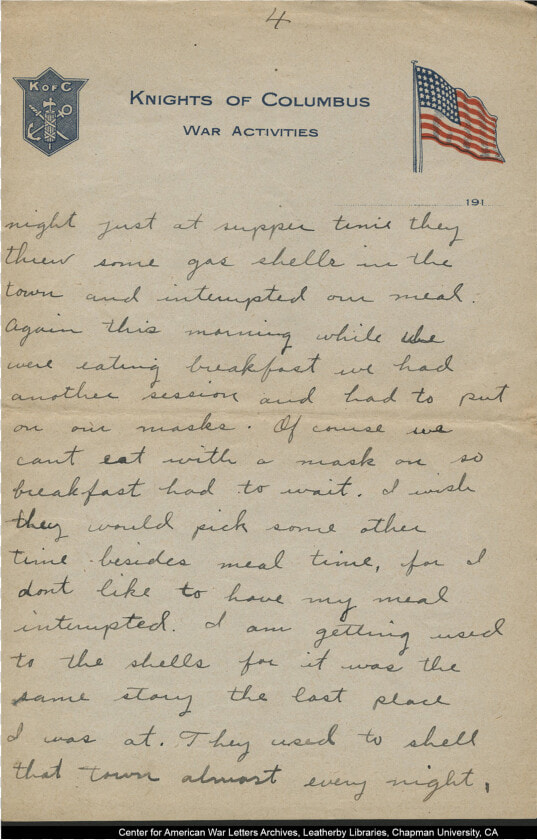 4
K OF C
KNIGHTS OF COLUMBUS
WAR ACTIVITIES
191
night just at supper time they
threw some gas shells in the
town and interupted our meal.
Again this morning while we
were eating breakfast we had
another session and had to put
on our masks. Of course we
cant eat with a mask on so
breakfast had to wait. I wish
they would pick some other
time besides meal time, for I
dont like to have my meal
interupted. I am getting used
to the shells for it was the
same story the last place
I was at. They used to shell
that town almost every night,
Center for American War Letters Archives, Leatherby Libraries, Chapman University, CA